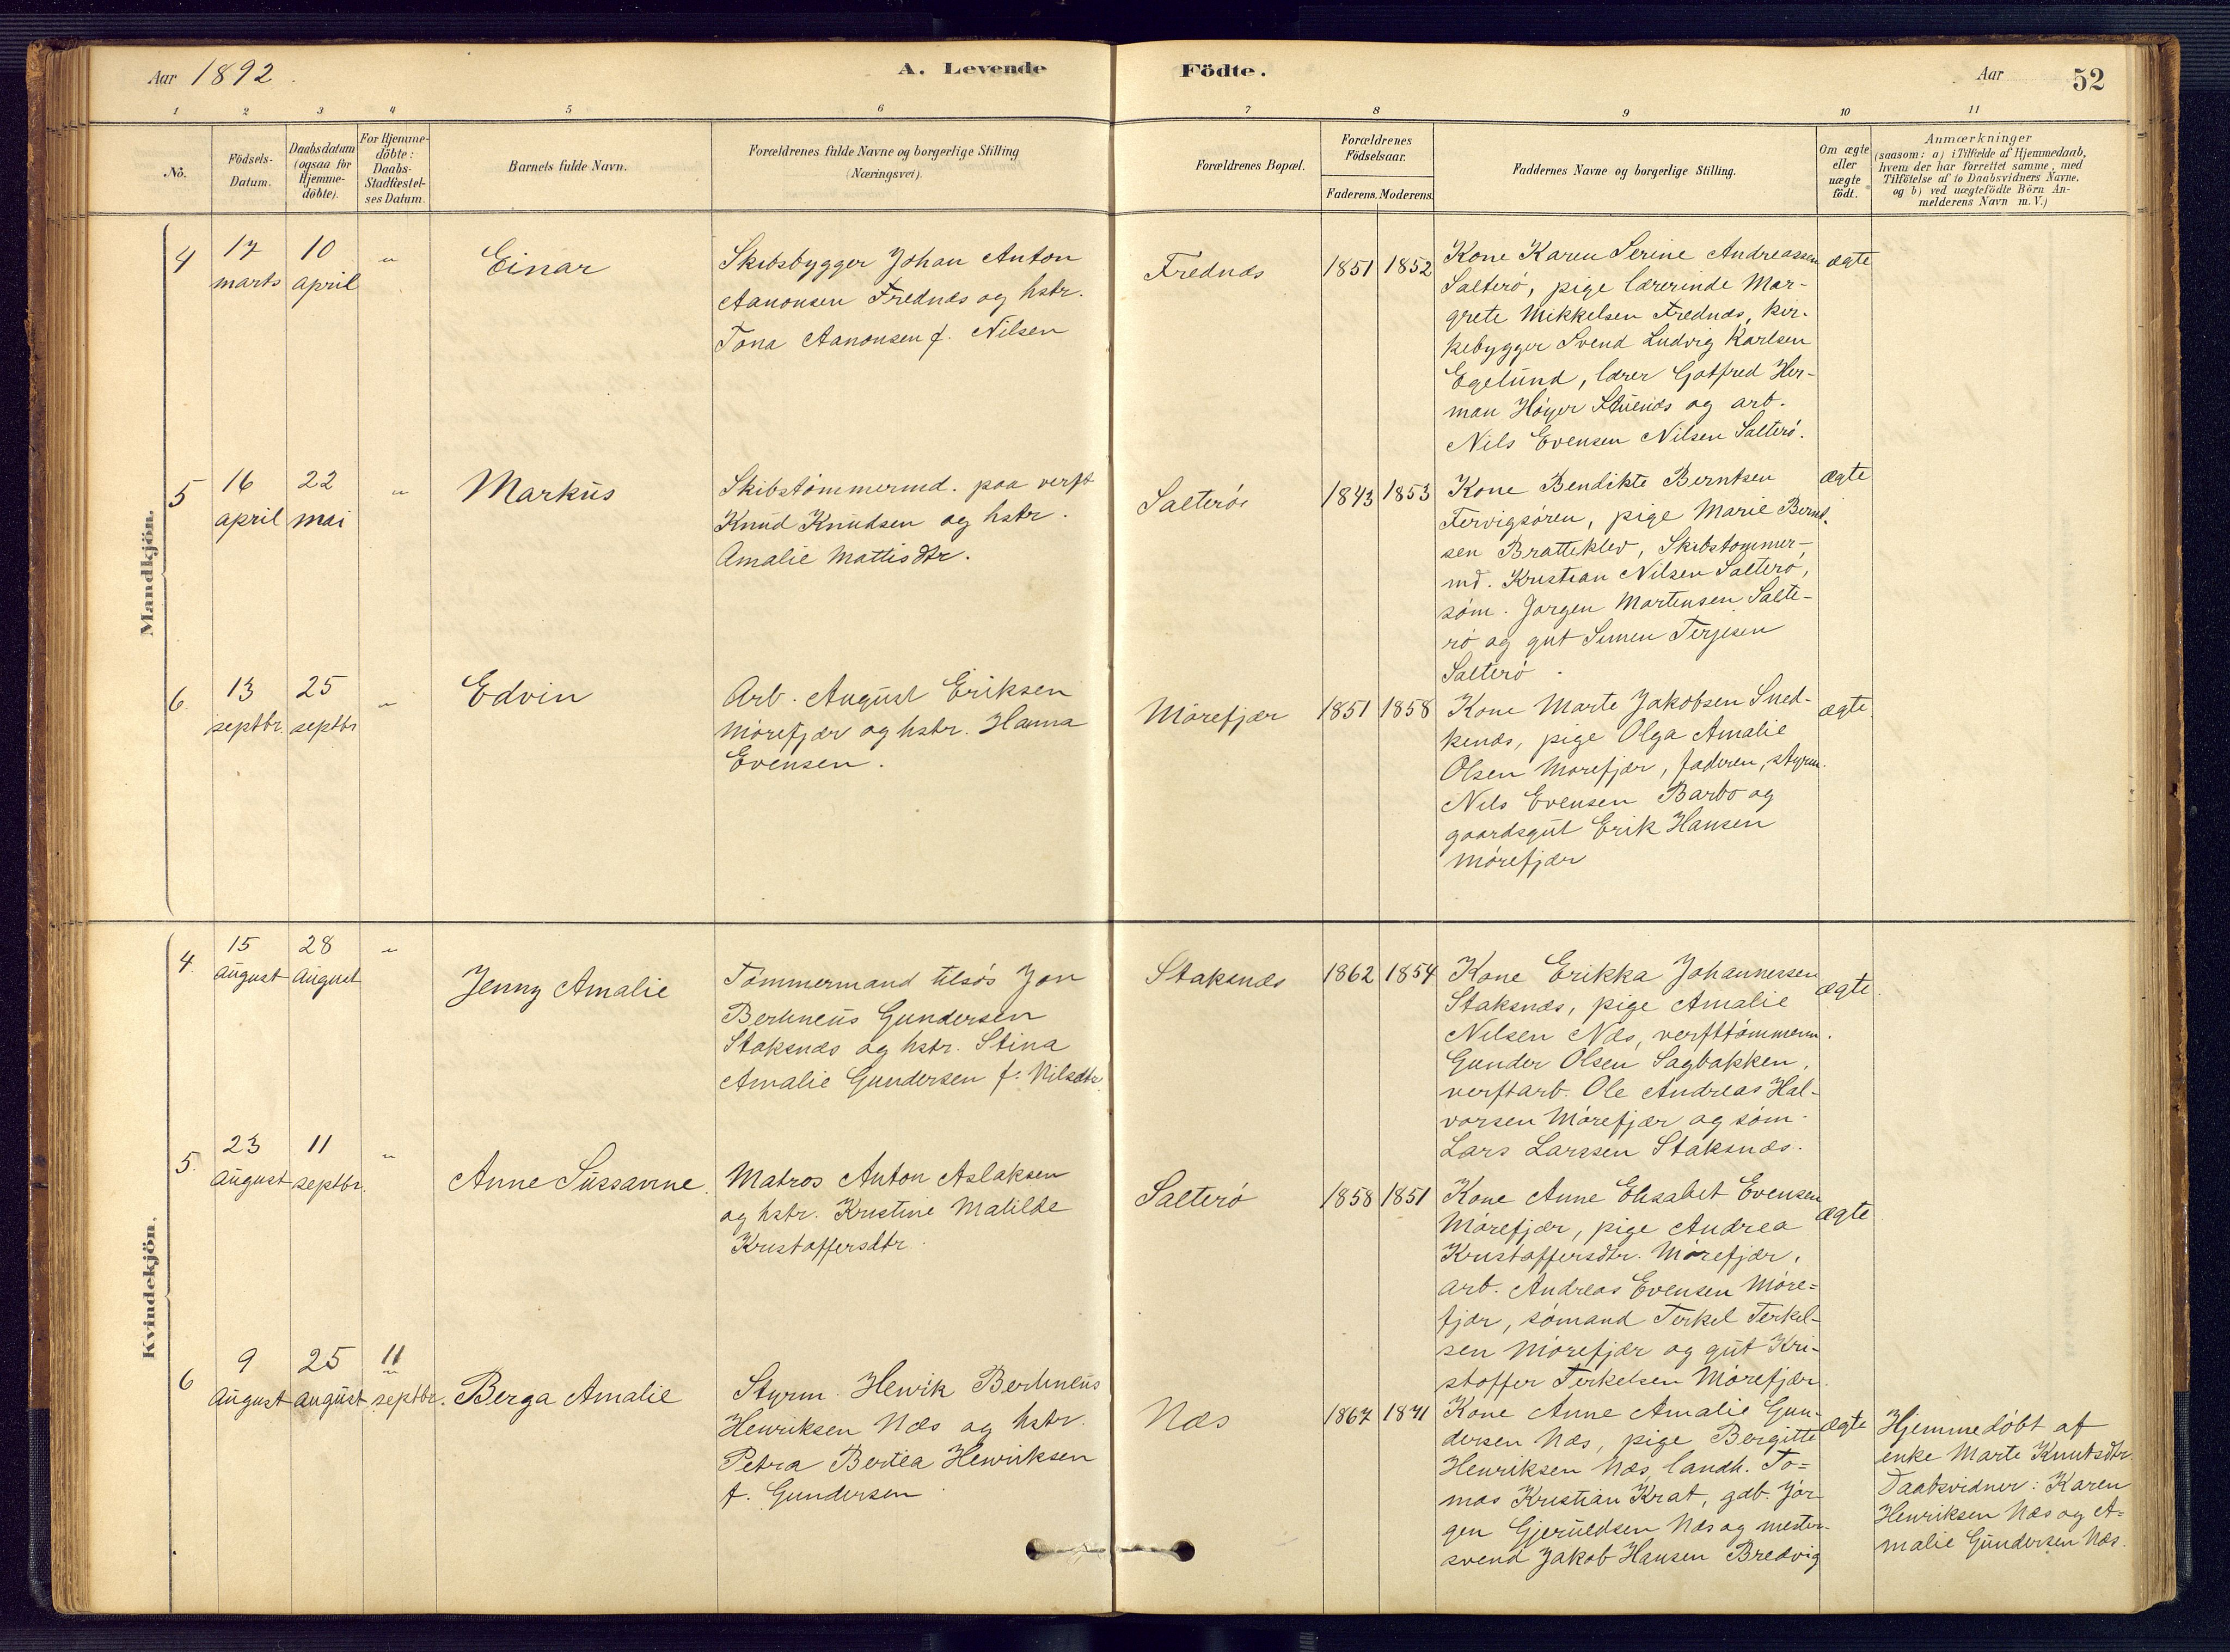 Aar 1892.
A. Levende Födte.
Aar
52
1 2 3 4 5 6 7 8 9 10 11
No.
Födsels-
Datum.
Daabsdatum
(ogsaa for
Hjemme-
döbte).
For Hjemme-
döbte:
Daabs-
Stadfæstel-
ses Datum.
Barnets fulde Navn.
Forældrenes fulde Navne og borgerlige Stilling
(Næringsvei).
Forældrenes Bopæl.
Forældrenes
Födselsaar.
Faderens. Moderens.
Faddernes Navne og borgerlige Stilling.
Om ægte
eller
uægte
födt.
Anmærkninger
(saasom: a) i Tilfælde af Hjemmedaab,
hvem der har forrettet samme, med
Tilföielse af to Daabsvidners Navne,
og b) ved uægtefödte Börn An-
melderens Navn m. V.)
Mandkjön.
4
17
marts
10
april
"
Einar
Skibsbygger Johan Anton
Aanonsen Frednæs og hstr.
Tona Aanonsen f. Nilsen
Frednæs
1851 1852
Kone Karen Serine Andreassen
Salterö, pige lærerinde Mar-
grete Mikkelsen Frednæs, kir-
kebygger Svend Ludvig Karlsen
Egelund, lærer Gotfred Her-
man Höyer Stuenæs og arb.
Nils Evensen Nilsen Salterö.
ægte
5
16
april
22
mai
"
Markus
Skibstömmermd. paa verft
Knud Knudsen og hstr.
Amalie Mattisdtr.
Salterö
1843 1853
Kone Bendikte Berntsen
Fervigsören, pige Marie Bernt-
sen Bratteklev, Skibstommer-
md. Kristian Nilsen Salterö,
söm. Jorgen Martensen Salte-
rö og gut Simen Terjesen
Salterö.
ægte
6.
13
septbr.
25
septbr
"
Edvin
Arb. August Eriksen
Mörefjær og hstr. Hanna
Evensen.
Mörefjær
1851 1858
Kone Marte Jakobsen Sned-
kenæs, pige Olga Amalie
Olsen Morefjær, faderen, styrm.
Nils Evensen Barbo og
gaardsgut Erik Hansen
Mörefjær
ægte
Kvindekjön.
4.
15
August
28
August
"
Jenny Amalie
Tömmermand tilsös Jon
Bertineus Gundersen
Staksnæs og hstr. Stina
Amalie Gundersen f. Nilsdtr.
Staksnæs
1862 1854
Kone Erikka Johannessen
Staksnæs, pige Amalie
Nilsen Næs, verfttömmerm.
Gunder Olsen Sagbakken,
verftarb. Ole Andreas Hal-
vorsen Mörefjær og söm.
Lars Larssen Staksnæs.
ægte.
5.
23
August
11
septbr.
"
Anne Sussanne.
Matros Anton Aslaksen
og hstr. Kristine Matilde
Kristoffersdtr.
Salterö
1858 1851
Kone Anne Elisabet Evensen
Mörefjær, pige Andrea
Kristoffersdtr. Mörefjær,
Arb. Andreas Evensen Möre-
fjær, sömand Terkel Terkel-
sen Mörefjær og gut Kri-
stoffer Terkelsen Mörefjær.
ægte
6
9
August
25
August
11
septbr.
Berga Amalie
Styrm. Henrik Bertineus
Henriksen Næs og hstr.
Petra Bertea Henriksen
f. Gundersen
Næs
1867 1871
Kone Anne Amalie Gun-
dersen Næs, pige Bergitte
Henriksen Næs, landh. To-
mas Kristian Krat, gdb. Jör-
gen Gjeruldsen Næs og mester-
svend Jakob Hansen Bredvig
ægte
Hjemmedöbt af
enke Marte Knutsdtr.
Daabsvidner: Karen
Henriksen Næs og A-
malie Gundersen Næs.